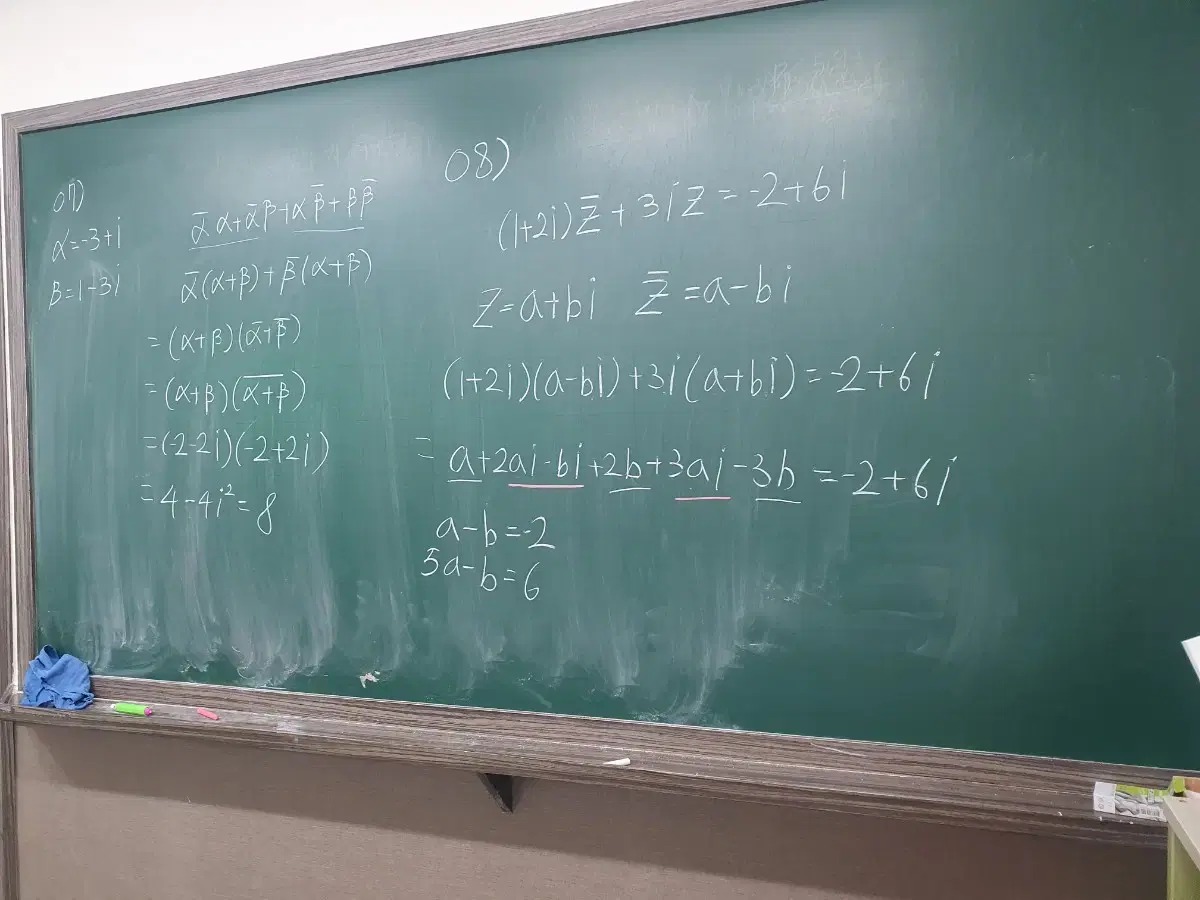 07)
α=-3+i
β=1-3i
ᾱα+ᾱβ+αβ̄+ββ̄
ᾱ(α+β)+β̄(α+β)
=(α+β)(ᾱ+β̄)
=(α+β)(α+β)̅
=(-2-2i)(-2+2i)
=4-4i²=8
08)
(1+2i)z̄+3iz=-2+6i
z=a+bi z̄=a-bi
(1+2i)(a-bi)+3i(a+bi)=-2+6i
=a+2ai-bi+2b+3ai-3b=-2+6i
a-b=-2
5a-b=6